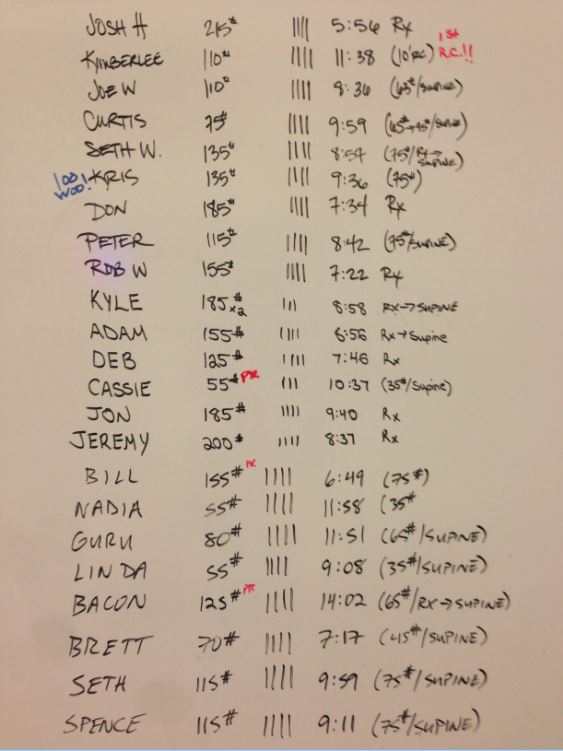 JOSH H 215# |||| 5:56 Rx
KIMBERLEE 110# |||| 11:38 (10'RC) 1ST R.C.!!
JOE W 110# |||| 8:36 (65#/SUPINE)
CURTIS 75# |||| 9:59 (65#→45#/SUPINE)
SETH W. 135# |||| 8:57 (75#/Rx→SUPINE)
100 WOD! KRIS 135# |||| 9:36 (75#)
DON 185# |||| 7:34 Rx
PETER 115# |||| 8:42 (75#/SUPINE)
ROB W 155# |||| 7:22 Rx
KYLE 185# x2 ||| 8:58 RX→SUPINE
ADAM 155# |||| 8:56 Rx→Supine
DEB 125# |||| 7:46 Rx
CASSIE 55# PR ||| 10:37 (35#/Supine)
JON 185# |||| 9:40 Rx
JEREMY 200# |||| 8:37 Rx
BILL 155# PR |||| 6:49 (75#)
NADIA 55# |||| 11:58 (35#
GURU 80# |||| 11:51 (65#/SUPINE)
LINDA 55# |||| 9:08 (35#/SUPINE)
BACON 125# PR |||| 14:02 (65#/RX→SUPINE)
BRETT 70# |||| 7:17 (45#/SUPINE)
SETH 115# |||| 9:59 (75#/SUPINE)
SPENCE 115# |||| 9:11 (75#/SUPINE)